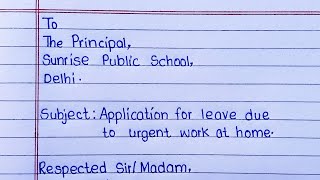 To
The Principal,
Sunrise Public School,
Delhi.
Subject: Application for leave due
to urgent work at home.
Respected Sir/Madam,